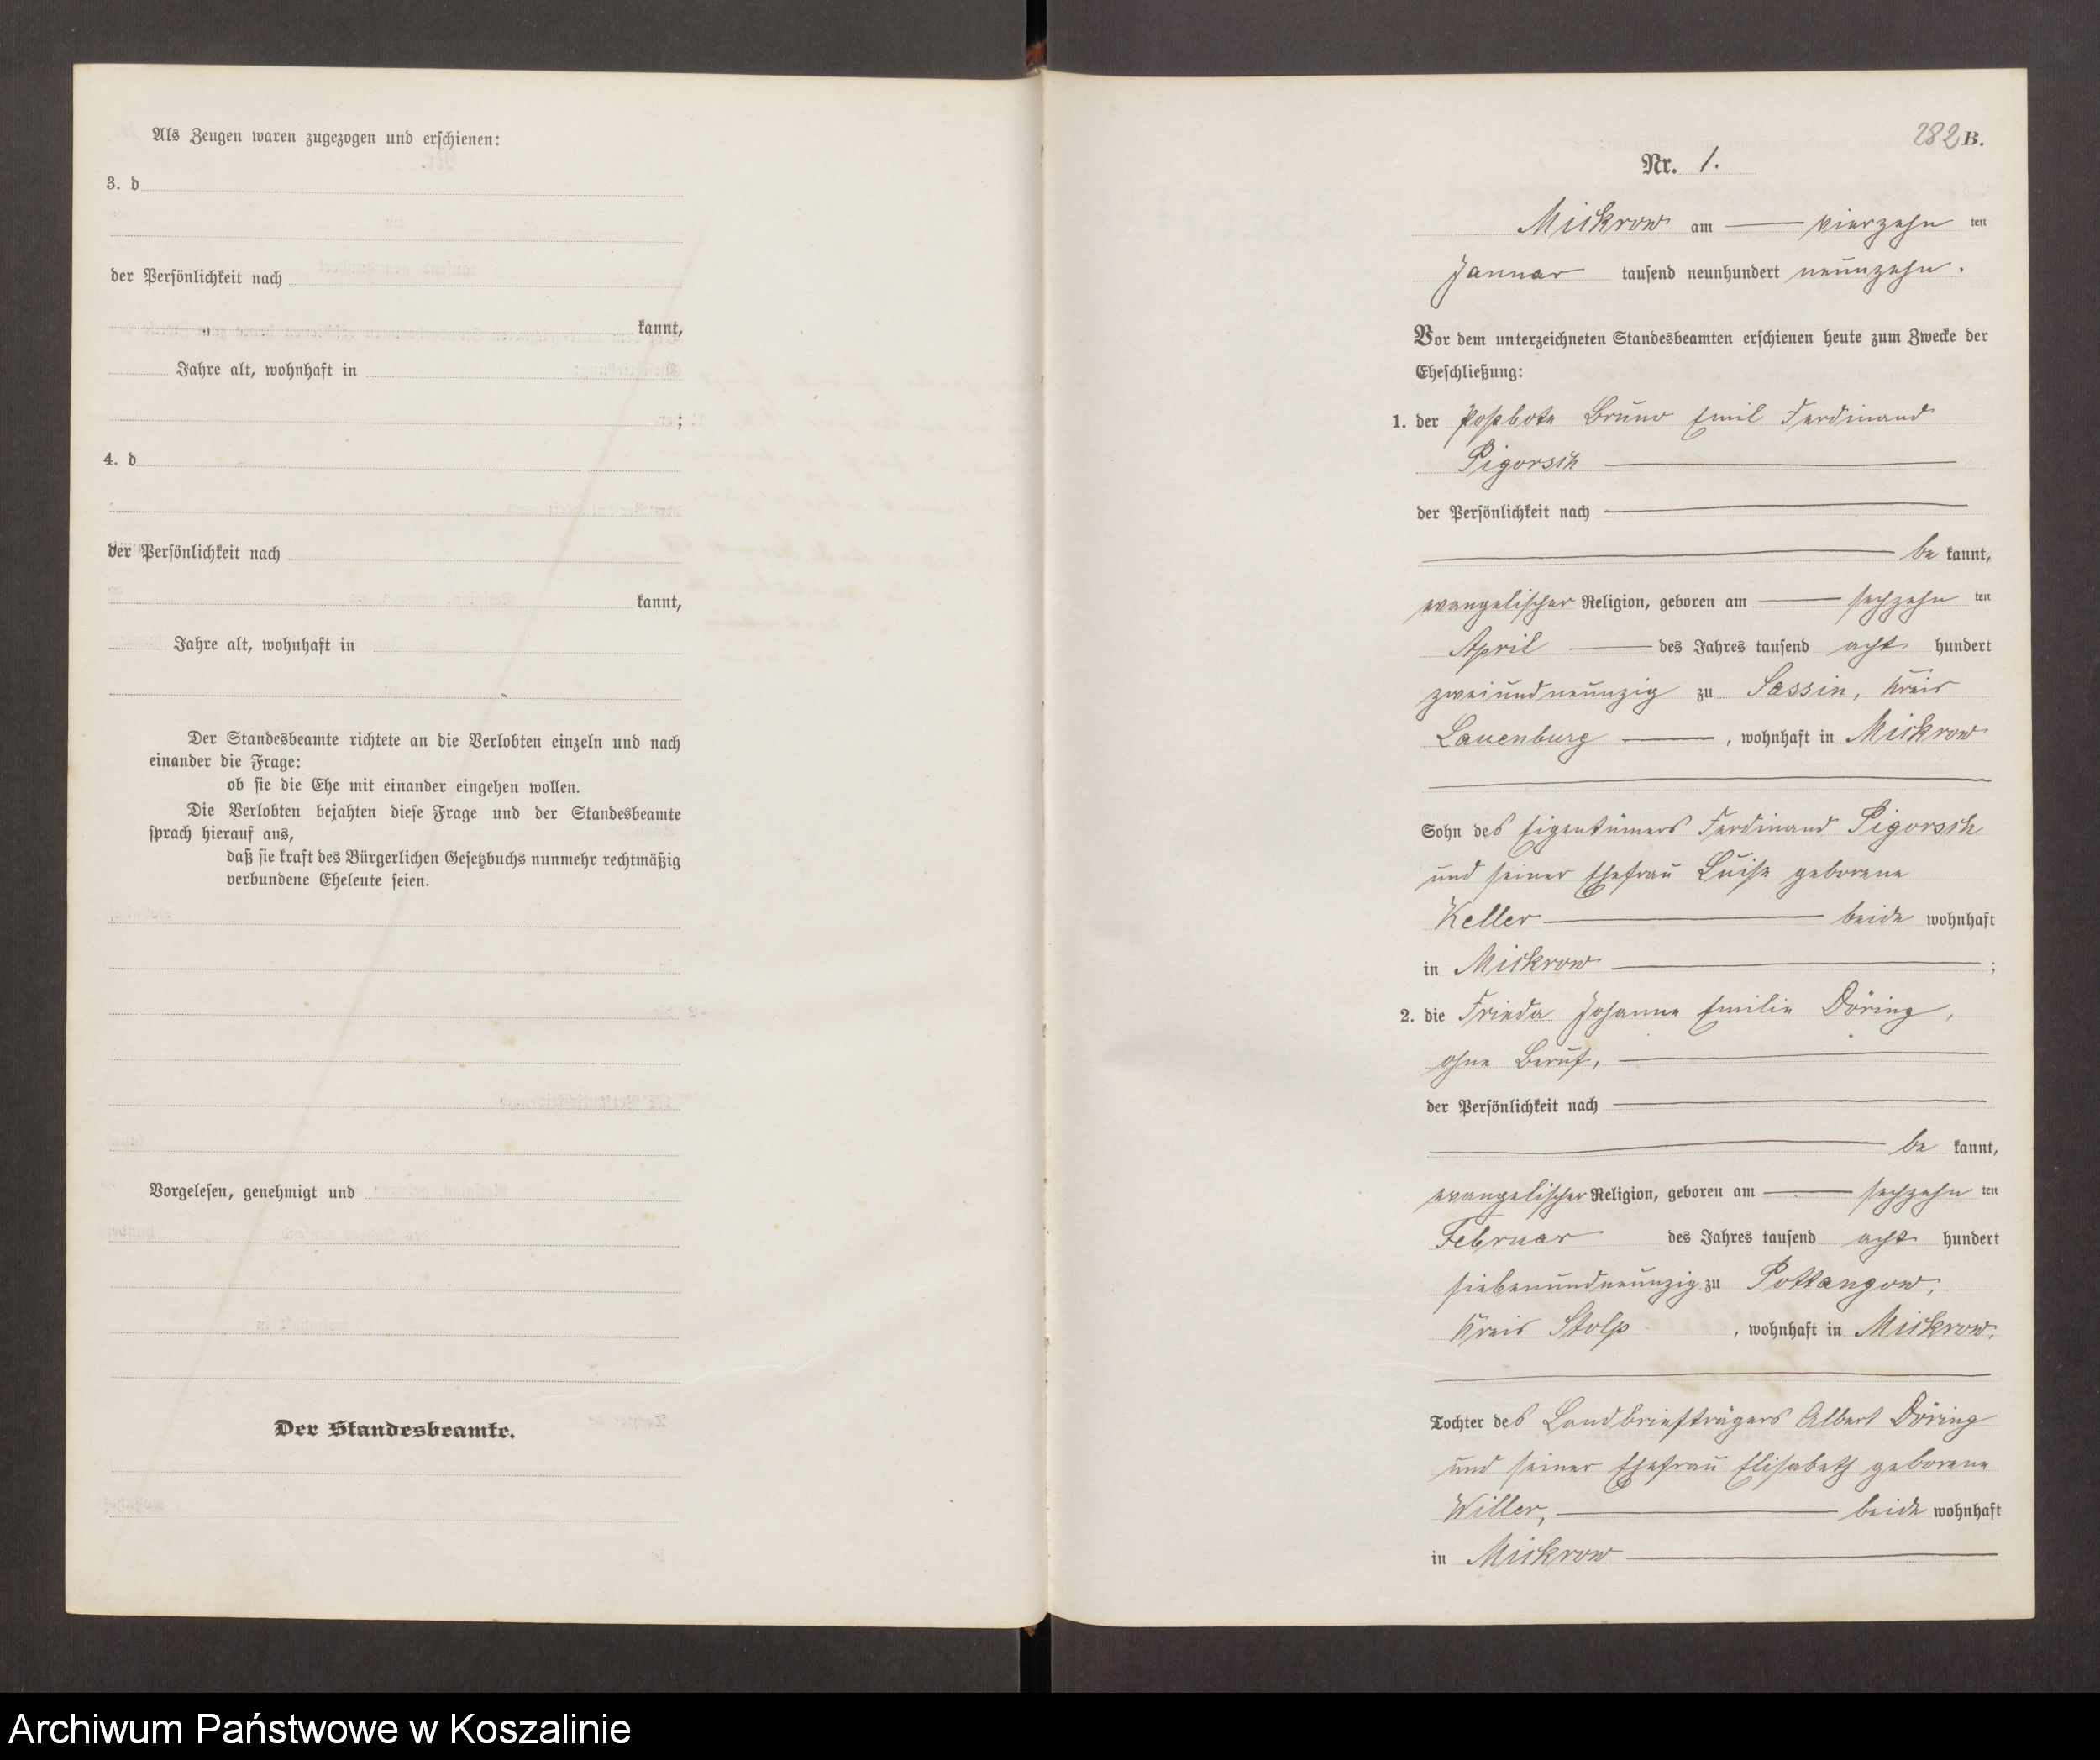 Als Zeugen waren zugezogen und erschienen:
3. d
der Persönlichkeit nach
kannt,
Jahre alt, wohnhaft in
;
4. d
der Persönlichkeit nach
kannt,
Jahre alt, wohnhaft in
Der Standesbeamte richtete an die Verlobten einzeln und nach
einander die Frage:
ob sie die Ehe mit einander eingehen wollen.
Die Verlobten bejahten diese Frage und der Standesbeamte
sprach hierauf aus,
daß sie kraft des Bürgerlichen Gesetzbuchs nunmehr rechtmäßig
verbundene Eheleute seien.
Vorgelesen, genehmigt und
Der Standesbeamte.
282 B.
Nr. 1.
Mickrow am vierzehn ten
Januar tausend neunhundert neunzehn.
Vor dem unterzeichneten Standesbeamten erschienen heute zum Zwecke der
Eheschließung:
1. der Postbote Bruno Emil Ferdinand
Pigorsch
der Persönlichkeit nach
be kannt,
evangelischer Religion, geboren am sechzehn ten
April des Jahres tausend acht hundert
zweiundneunzig zu Sassin, Kreis
Lauenburg, wohnhaft in Mickrow
Sohn des Eigentümers Ferdinand Pigorsch
und seiner Ehefrau Luise geborene
Keller beide wohnhaft
in Mickrow ;
2. die Frieda Johanne Emilie Döring,
ohne Beruf,
der Persönlichkeit nach
be kannt,
evangelischer Religion, geboren am sechzehn ten
Februar des Jahres tausend acht hundert
siebenundneunzig zu Pottangow,
Kreis Stolp, wohnhaft in Mickrow,
Tochter des Landbriefträgers Albert Döring
und seiner Ehefrau Elisabeth geborene
Willer, beide wohnhaft
in Mickrow
Archiwum Państwowe w Koszalinie